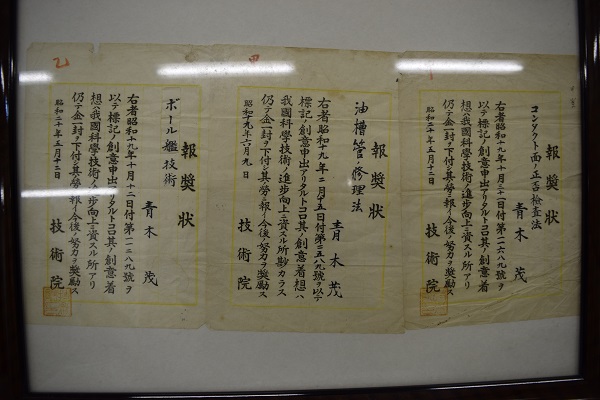 報奨状
コンタクト面ノ正否検査法
青木 茂
右者昭和十九年十月三十一日付第一一六八九號ヲ
以テ標記ノ創意申出アリタルトコロ其ノ創意着
想ハ我國科學技術ノ進步向上ニ資スル所アリ
仍テ金一封ヲ下付シ其ノ勞ニ報イ今後ノ努力ヲ奬勵ス
昭和二十年五月十二日
技術院
報奨状
油槽管ノ修理法
青木 茂
右者昭和十九年二月十五日付第二五八九號ヲ以テ
標記ノ創意申出アリタルトコロ其ノ創意着想ハ
我國科學技術ノ進步向上ニ資スル所尠カラス
仍テ金一封ヲ下付シ其ノ勞ニ報イ今後ノ努力ヲ奬勵ス
昭和十九年六月九日
技術院
乙
報奨状
ボール盤技術
青木 茂
右者昭和十九年十月十二日付第一一二八九號ヲ
以テ標記ノ創意申出アリタルトコロ其ノ創意着
想ハ我國科學技術ノ進步向上ニ資スル所アリ
仍テ金一封ヲ下付シ其ノ勞ニ報イ今後ノ努力ヲ奬勵ス
昭和二十年五月十二日
技術院